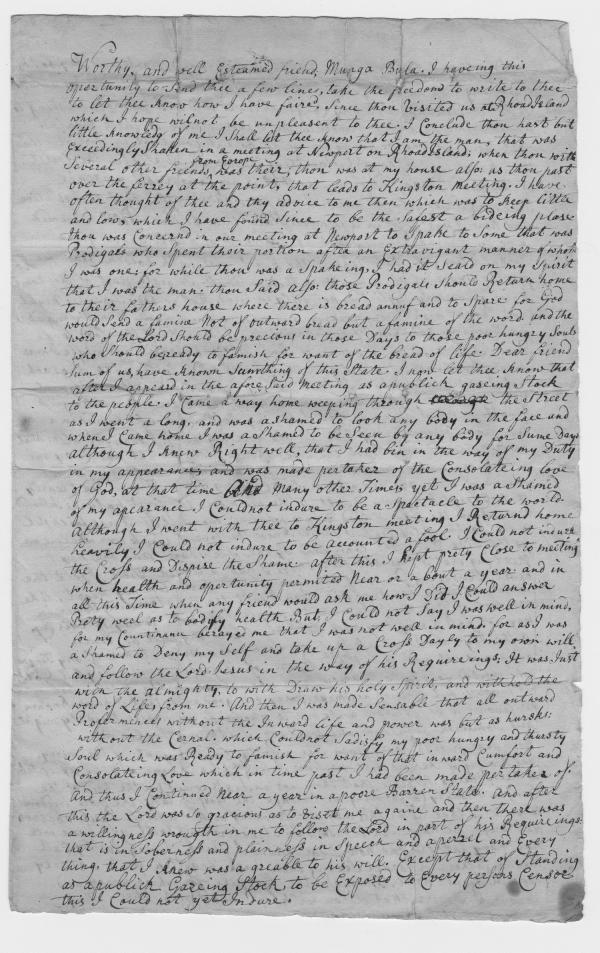 Worthy, and well Esteamed friend, Munga Byla. I haveing this
opertunity to Send thee a few lines, take the freedond to write to thee
to let thee know how I have faire, Since thou Visited us at RhoadIsland
which I hope wilnot, be unpleasent to thee. I Conclude thou hast but
little knowledg of me I Shall let thee know that I am the man, that was
Exceedingly Shaken in a meeting at Newport on RhoadIsland, when thou with
Several other friends from Europe was their, thou was at my house also: as thou past
over the ferrey at the point, that leads to Kingston meeting. I have
often thought of thee and thy advice to me then which was to keep little
and low, which I have found Since to be the Safest a bideing place
thou was Concernd in our meeting at Newport to Spake to Some that was
Prodigals who Spent their portion after an Extravigant manner of whom
I was one: for while thou was a Spakeing, I had it Seald on my Spirit
that I was the man. thou Said also: those Prodigals Should Return home
to their fathers house where there is bread annuf and to Spare for God
would Send a famine Not of outward bread but a famine of the word. and the
word of the Lord Should be precious in those Days to those poor hungry Souls
who Should be ready to famish for want of the bread of life. Dear friend
Sum of us, have known Sumthing of this State. I now let thee know that
after I appeard in the afore Said meeting as a publick gaseing Stock
to the people. I Came a way home weeping through the Street
as I went a long. and was a Shamed to look any body in the face and
when I Came home I was a Shamed to be Seen by any body for Sume Days
although I knew Right well, that I had bin in the way of my Duty
in my appearance, and was made pertaker of the Consolateing love
of God, at that time And Many other Times, yet I was a Shamed
of my apearance I Couldnot indure to be a Spactacle to the world.
Although I went with thee to Kingston meeting I Return'd home
heavily I Could not indure to be accounted a fool. I Could not indure
the Cross and Dispise the Shame. after this I kept pretty Close to meeting
when health and opertunity permited Near or a bout a year. and in
all this Time when any friend would ask me how I Did I Could answer
Prety weel as to bodily health But, I Could not Say I was well in mind,
for my Countinance berayed me that I was not well in mind. for as I was
a Shamed to Deny my Self and take up a Cross Dayly to my own will
and follow the Lord Jesus in the way of his Requireings: It was Just
with the almighty, to with Draw his holy Spirit, and withhold the
word of Life from me. And then I was made Sensable that all outward
Proformences without the Inward life and power was but as husks:
without the Cernal. which Couldnot Sadisfy my poor hungry and thirsty
Soul which was Ready to famish for want of that inward Cumfort and
Consolateing Love which in time past I had been made pertaker of.
And thus I Continued Near a year in a poore Barren State. And after
this the Lord was So gracious as to Viset me againe and then there was
a willingness wrough in me to follow the Lord in part of his Requireings:
that is in Soberness and plainness in Speech and aperrel and Every
thing, that I knew was a greable to his will. Except that of Standing
as a publick Gazeing Stock, to be Exposed to Every persons Censor
this I Could not yet Indure.